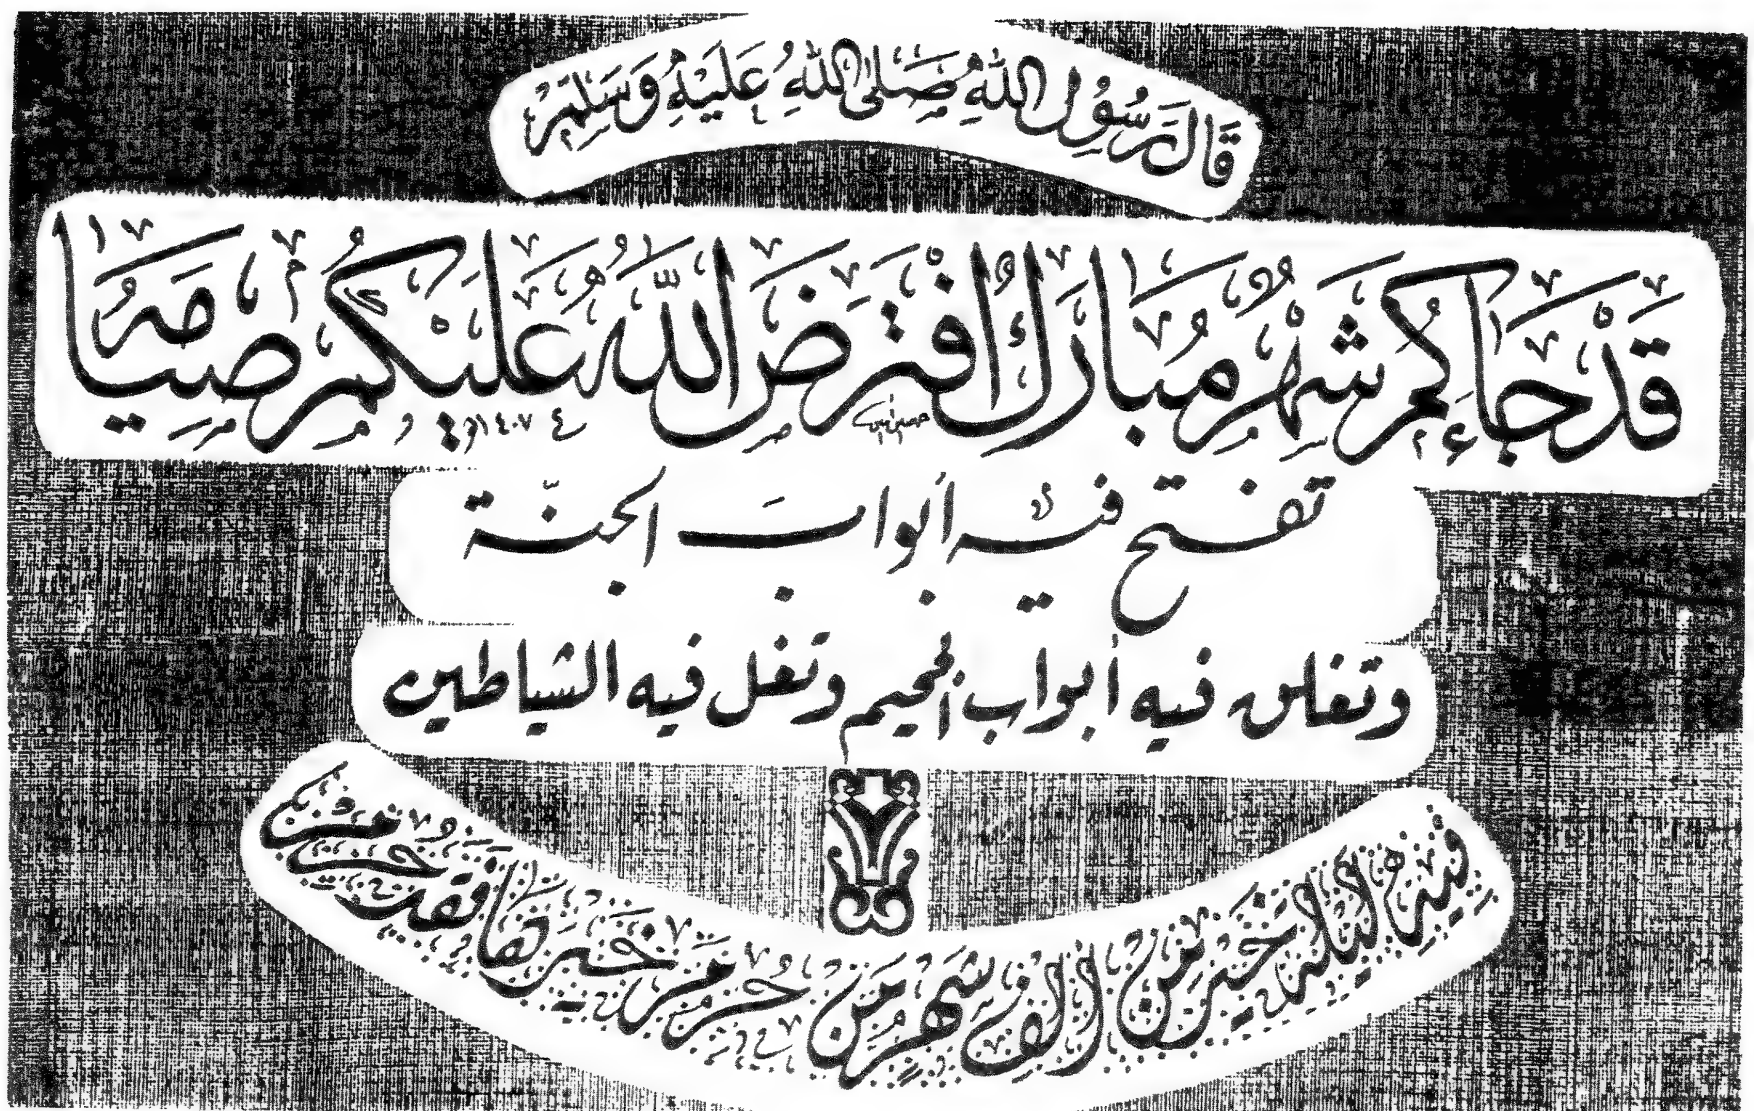 قَالَ رَسُوْلُ اللّٰهِ صَلَّى اللّٰهُ عَلَيْهِ وَسَلَّمَ
قَدْ جَاءَكُمْ شَهْرٌ مُبَارَكٌ اِفْتَرَضَ اللّٰهُ عَلَيْكُمْ صِيَامَهُ
تفتح فيه أبوابَ الجنّة
وتغلق فيه أبواب الجحيم وتغل فيه الشياطين
فِيْهِ لَيْلَة خَيْرٌ مِنْ اَلْفِ شَهْرٍ مَنْ حُرِمَ خَيْرَهَا فَقَدْ حُرِمَ